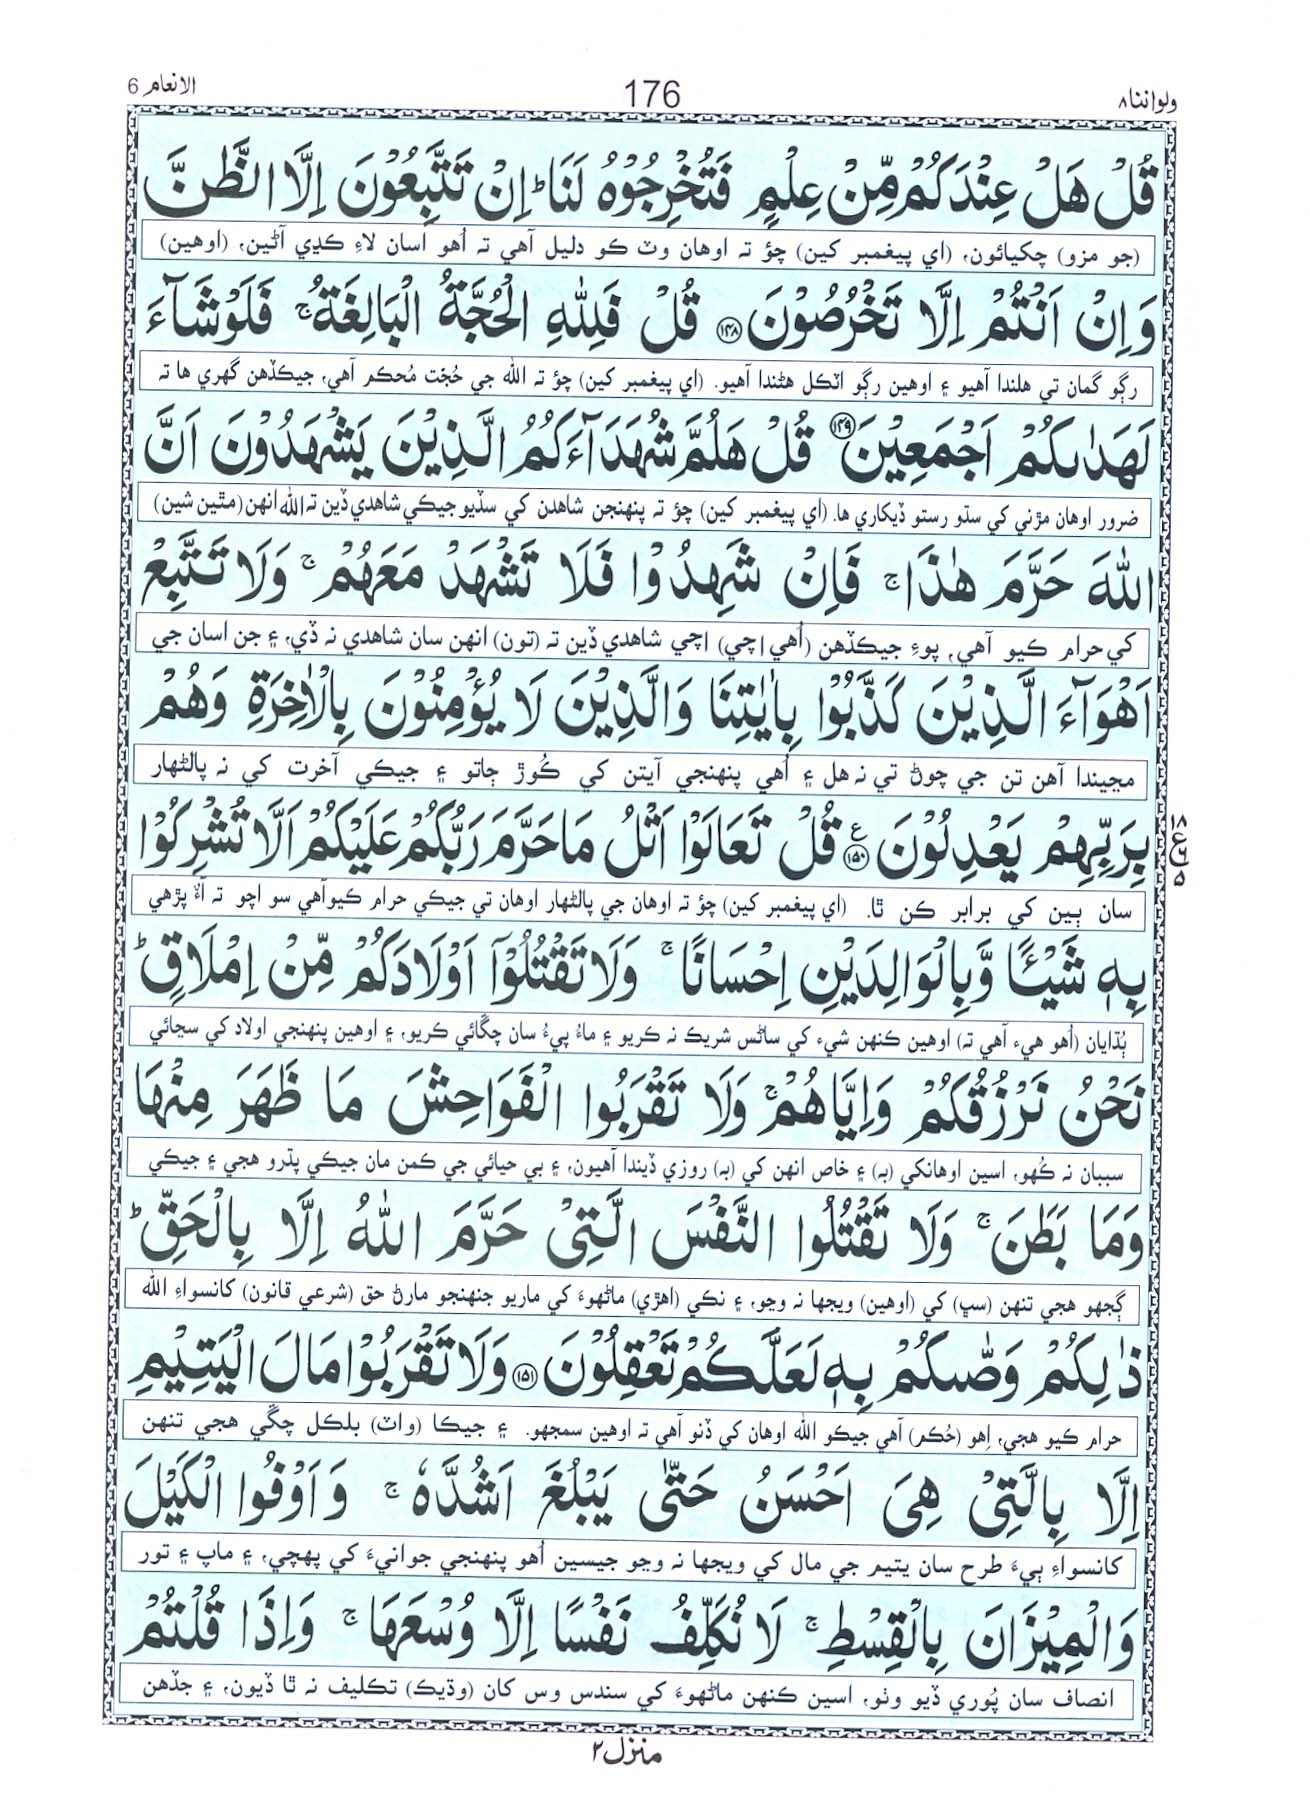 الانعام 6
176
ولواننا ۸
قُلْ هَلْ عِنْدَكُمْ مِّنْ عِلْمٍ فَتُخْرِجُوْهُ لَنَا ؕ اِنْ تَتَّبِعُوْنَ اِلَّا الظَّنَّ
(جو مزو) چکيائون، (اي پيغمبر کين) چؤ ته اوهان وٽ ڪو دليل آهي ته اُهو اسان لاءِ ڪڍي آڻين، (اوهين)
وَاِنْ اَنْتُمْ اِلَّا تَخْرُصُوْنَ ﴿۱۴۸﴾ قُلْ فَلِلّٰهِ الْحُجَّةُ الْبَالِغَةُ ۚ فَلَوْ شَآءَ
رڳو گمان تي هلندا آهيو ۽ اوهين رڳو اٽڪل هڻندا آهيو. (اي پيغمبر کين) چؤ ته الله جي حُجّت مُحڪم آهي، جيڪڏهن گهري ها ته
لَهَدٰىكُمْ اَجْمَعِيْنَ ﴿۱۴۹﴾ قُلْ هَلُمَّ شُهَدَآءَكُمُ الَّذِيْنَ يَشْهَدُوْنَ اَنَّ
ضرور اوهان مڙني کي سڌو رستو ڏيکاري ها. (اي پيغمبر کين) چؤ ته پنهنجن شاهدن کي سڏيو جيڪي شاهدي ڏين ته الله انهن (مٿين شين)
اللّٰهَ حَرَّمَ هٰذَا ۚ فَاِنْ شَهِدُوْا فَلَا تَشْهَدْ مَعَهُمْ ۚ وَلَا تَتَّبِعْ
کي حرام ڪيو آهي، پوءِ جيڪڏهن (اُهي اچي) اچي شاهدي ڏين ته (تون) انهن سان شاهدي نه ڏي، ۽ جن اسان جي
اَهْوَآءَ الَّذِيْنَ كَذَّبُوْا بِاٰيٰتِنَا وَالَّذِيْنَ لَا يُؤْمِنُوْنَ بِالْاٰخِرَةِ وَهُمْ
مڃيندا آهن تن جي چوڻ تي نه هل ۽ اُهي پنهنجي آيتن کي ڪُوڙ ڄاتو ۽ جيڪي آخرت کي نه پالڻهار
بِرَبِّهِمْ يَعْدِلُوْنَ ﴿۱۵۰﴾ ع قُلْ تَعَالَوْا اَتْلُ مَا حَرَّمَ رَبُّكُمْ عَلَيْكُمْ اَلَّا تُشْرِكُوْا
۱۸ ع ۶ ۵
سان ٻين کي برابر ڪن ٿا. (اي پيغمبر کين) چؤ ته اوهان جي پالڻهار اوهان تي جيڪي حرام ڪيو آهي سو اچو ته آءٌ پڙهي
بِهٖ شَيْـًٔا وَّبِالْوَالِدَيْنِ اِحْسَانًا ۚ وَلَا تَقْتُلُوْٓا اَوْلَادَكُمْ مِّنْ اِمْلَاقٍ ؕ
ٻُڌايان (اُهو هيء آهي ته) اوهين ڪنهن شيء کي ساڻس شريڪ نه ڪريو ۽ ماءُ پيءُ سان چڱائي ڪريو، ۽ اوهين پنهنجي اولاد کي سڃائي
نَحْنُ نَرْزُقُكُمْ وَاِيَّاهُمْ ۚ وَلَا تَقْرَبُوا الْفَوَاحِشَ مَا ظَهَرَ مِنْهَا
سببان نه ڪُهو، اسين اوهانکي (به) ۽ خاص انهن کي (به) روزي ڏيندا آهيون، ۽ بي حيائي جي ڪمن مان جيڪي پڌرو هجي ۽ جيڪي
وَمَا بَطَنَ ۚ وَلَا تَقْتُلُوا النَّفْسَ الَّتِيْ حَرَّمَ اللّٰهُ اِلَّا بِالْحَقِّ ؕ
ڳجهو هجي تنهن (سڀ) کي (اوهين) ويجها نه وڃو، ۽ نڪي (اهڙي) ماڻهوءَ کي ماريو جنهنجو مارڻ حق (شرعي قانون) کانسواءِ الله
ذٰلِكُمْ وَصّٰىكُمْ بِهٖ لَعَلَّكُمْ تَعْقِلُوْنَ ﴿۱۵۱﴾ وَلَا تَقْرَبُوْا مَالَ الْيَتِيْمِ
حرام ڪيو هجي، اِهو (حُڪم) آهي جيڪو الله اوهان کي ڏنو آهي ته اوهين سمجهو. ۽ جيڪا (واٽ) بلڪل چڱي هجي تنهن
اِلَّا بِالَّتِيْ هِيَ اَحْسَنُ حَتّٰى يَبْلُغَ اَشُدَّهٗ ۚ وَاَوْفُوا الْكَيْلَ
کانسواءِ ٻيءَ طرح سان يتيم جي مال کي ويجها نه وڃو جيسين اُهو پنهنجي جوانيءَ کي پهچي، ۽ ماپ ۽ تور
وَالْمِيْزَانَ بِالْقِسْطِ ۚ لَا نُكَلِّفُ نَفْسًا اِلَّا وُسْعَهَا ۚ وَاِذَا قُلْتُمْ
انصاف سان پُوري ڏيو وٺو، اسين ڪنهن ماڻهوءَ کي سندس وس کان (وڌيڪ) تڪليف نه ٿا ڏيون، ۽ جڏهن
منزل ۲